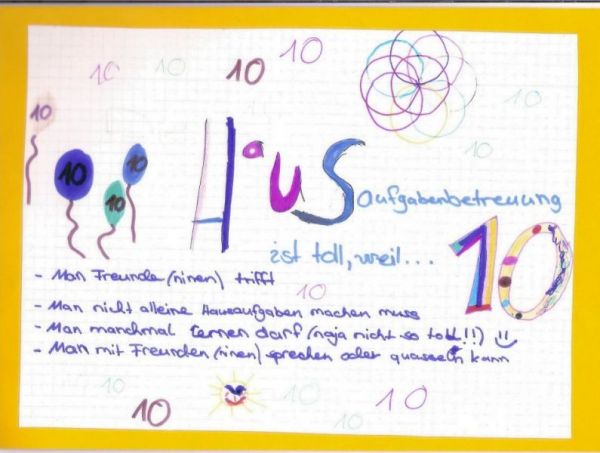 10
10 10 10
10
10
10
10 10
10
Hausaufgabenbetreuung
ist toll, weil... 10
- Man Freunde (rinnen) trifft
10
- Man nicht alleine Hausaufgaben machen muss
- Man manchmal lernen darf (naja nicht so toll!!)
- Man mit Freunden (rinnen) sprechen oder quasseln kann
10 10 10
10 10